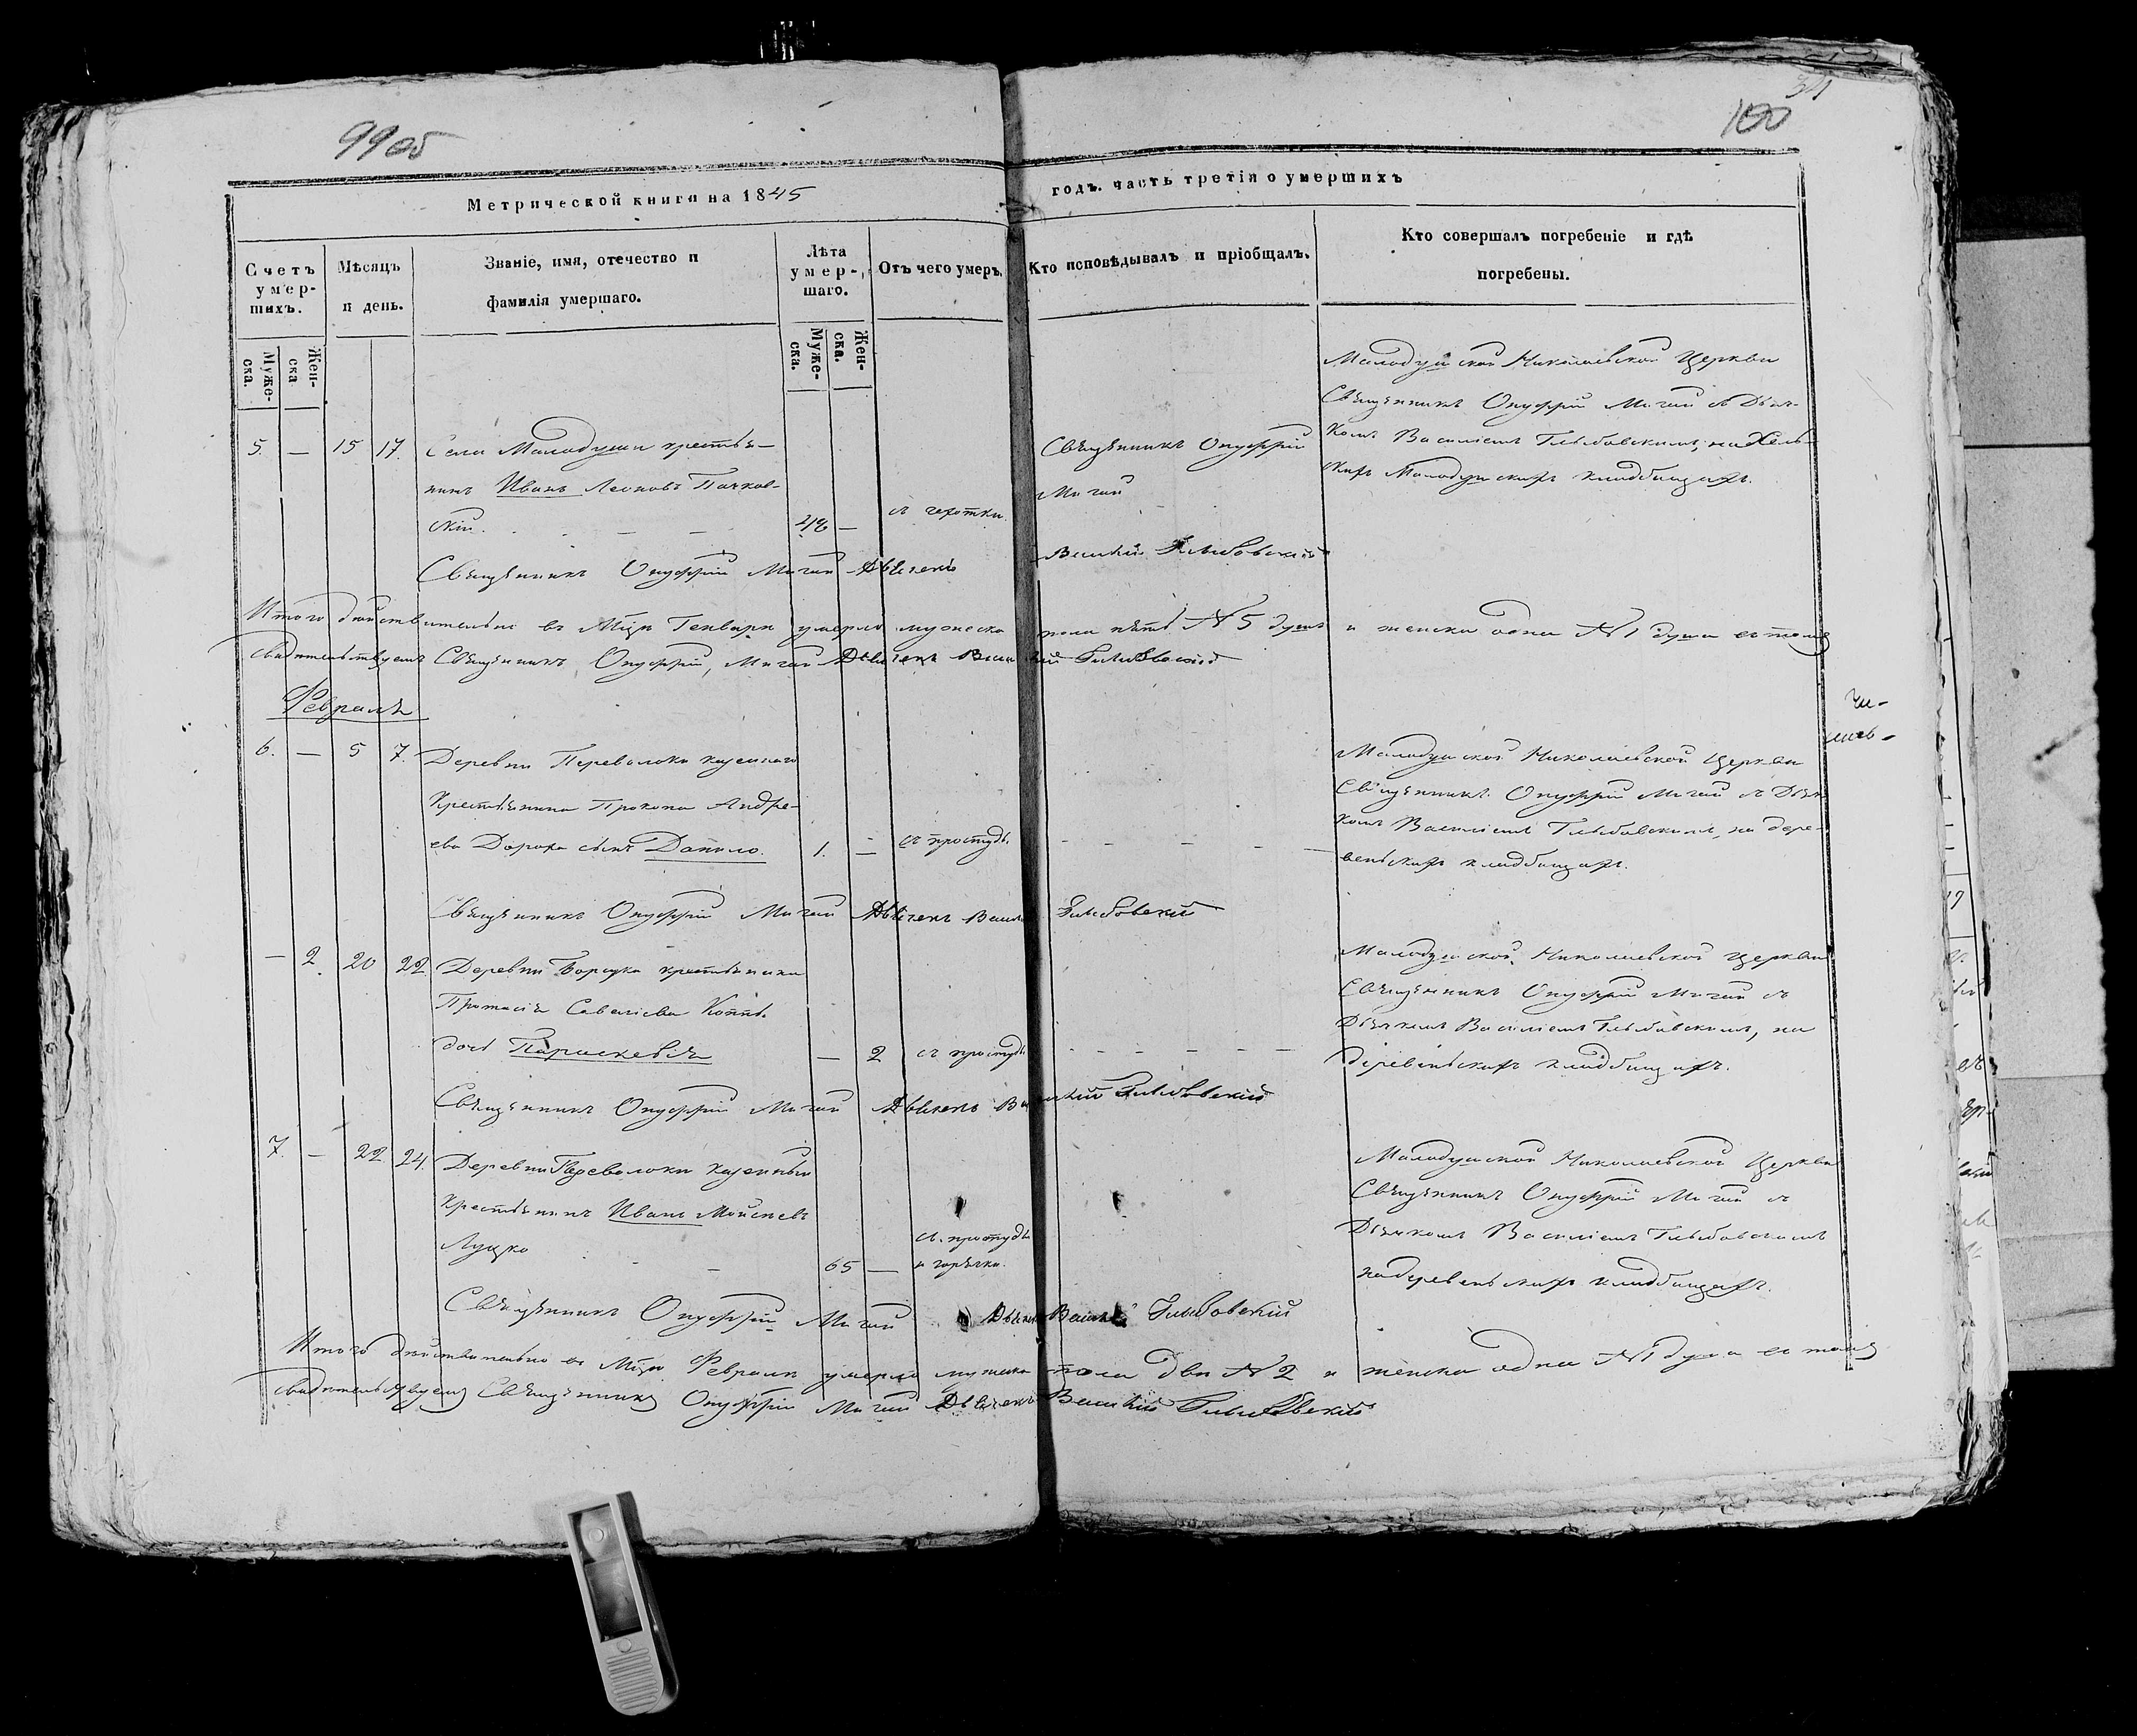 99 об
100
Метрической книги на 1845
годъ. часть третія о умершихъ
Счетъ умер-шихъ.
Мѣсяцъ и день.
Званіе, имя, отечество и фамилія умершаго.
Лѣта умер-шаго.
Отъ чего умеръ.
Кто исповѣдывалъ и пріобщалъ.
Кто совершалъ погребеніе и гдѣ погребены.
Муже-ска.
Жен-ска
Муже-ска.
Жен-ска.
5. — 15 17. Села Малодуши крестья-
нинъ Иванъ Леоновъ
скій. — —
съ чехотки.
Священникъ Онуфрій
Мигай
Малодушской Николаевской Церкви
Священникъ Онуфрій Мигай съ Дьяч-
комъ Василіемъ Глыбовскимъ, на сель-
скихъ Малодушскихъ кладбищахъ.
Священникъ Онуфрій Мигай Дьячекъ Василій Глыбовскій
Итого дѣйствительно въ Мцѣ Генварѣ умерло мужеска пола пять № 5 душъ и женска одна № 1 душа въ томъ
свидѣтельствуемъ Священникъ Онуфрій Мигай Дьячекъ Василій Глыбовскій
Февраль
6. — 5 7. Деревни Переволоки казеннаго
крестьянина Прокопа Андре-
ева Дороха сынъ Данило.
1. — съ простуды.
Малодушской Николаевской Церкви
Священникъ Онуфрій Мигай съ Дьяч-
комъ Василіемъ Глыбовскимъ, на дере-
венскихъ кладбищахъ.
Священникъ Онуфрій Мигай Дьячекъ Василій Глыбовскій
— 2. 20 22 Деревни крестьянина
Протасія Савеліева
дочь Параскевія
— 2 съ простуды
Малодушской Николаевской Церкви
Священникъ Онуфрій Мигай съ
Дьячкомъ Василіемъ Глыбовскимъ, на
деревенскихъ кладбищахъ.
Священникъ Онуфрій Мигай Дьячекъ Василій Глыбовскій
7. — 22. 24. Деревни Переволоки казенный
крестьянинъ Иванъ Мойсеевъ
Луцко — —
65 — съ простуды
и горячки.
Малодушской Николаевской Церкви
Священникъ Онуфрій Мигай съ
Дьячкомъ Василіемъ Глыбовскимъ
на деревенскихъ кладбищахъ.
Священникъ Онуфрій Мигай Дьячекъ Василій Глыбовскій
Итого дѣйствительно въ Мцѣ Февралѣ умерло мужеска пола два № 2 и женска одна № 1 душа въ томъ
свидѣтельствуемъ Священникъ Онуфрій Мигай Дьячекъ Василій Глыбовскій